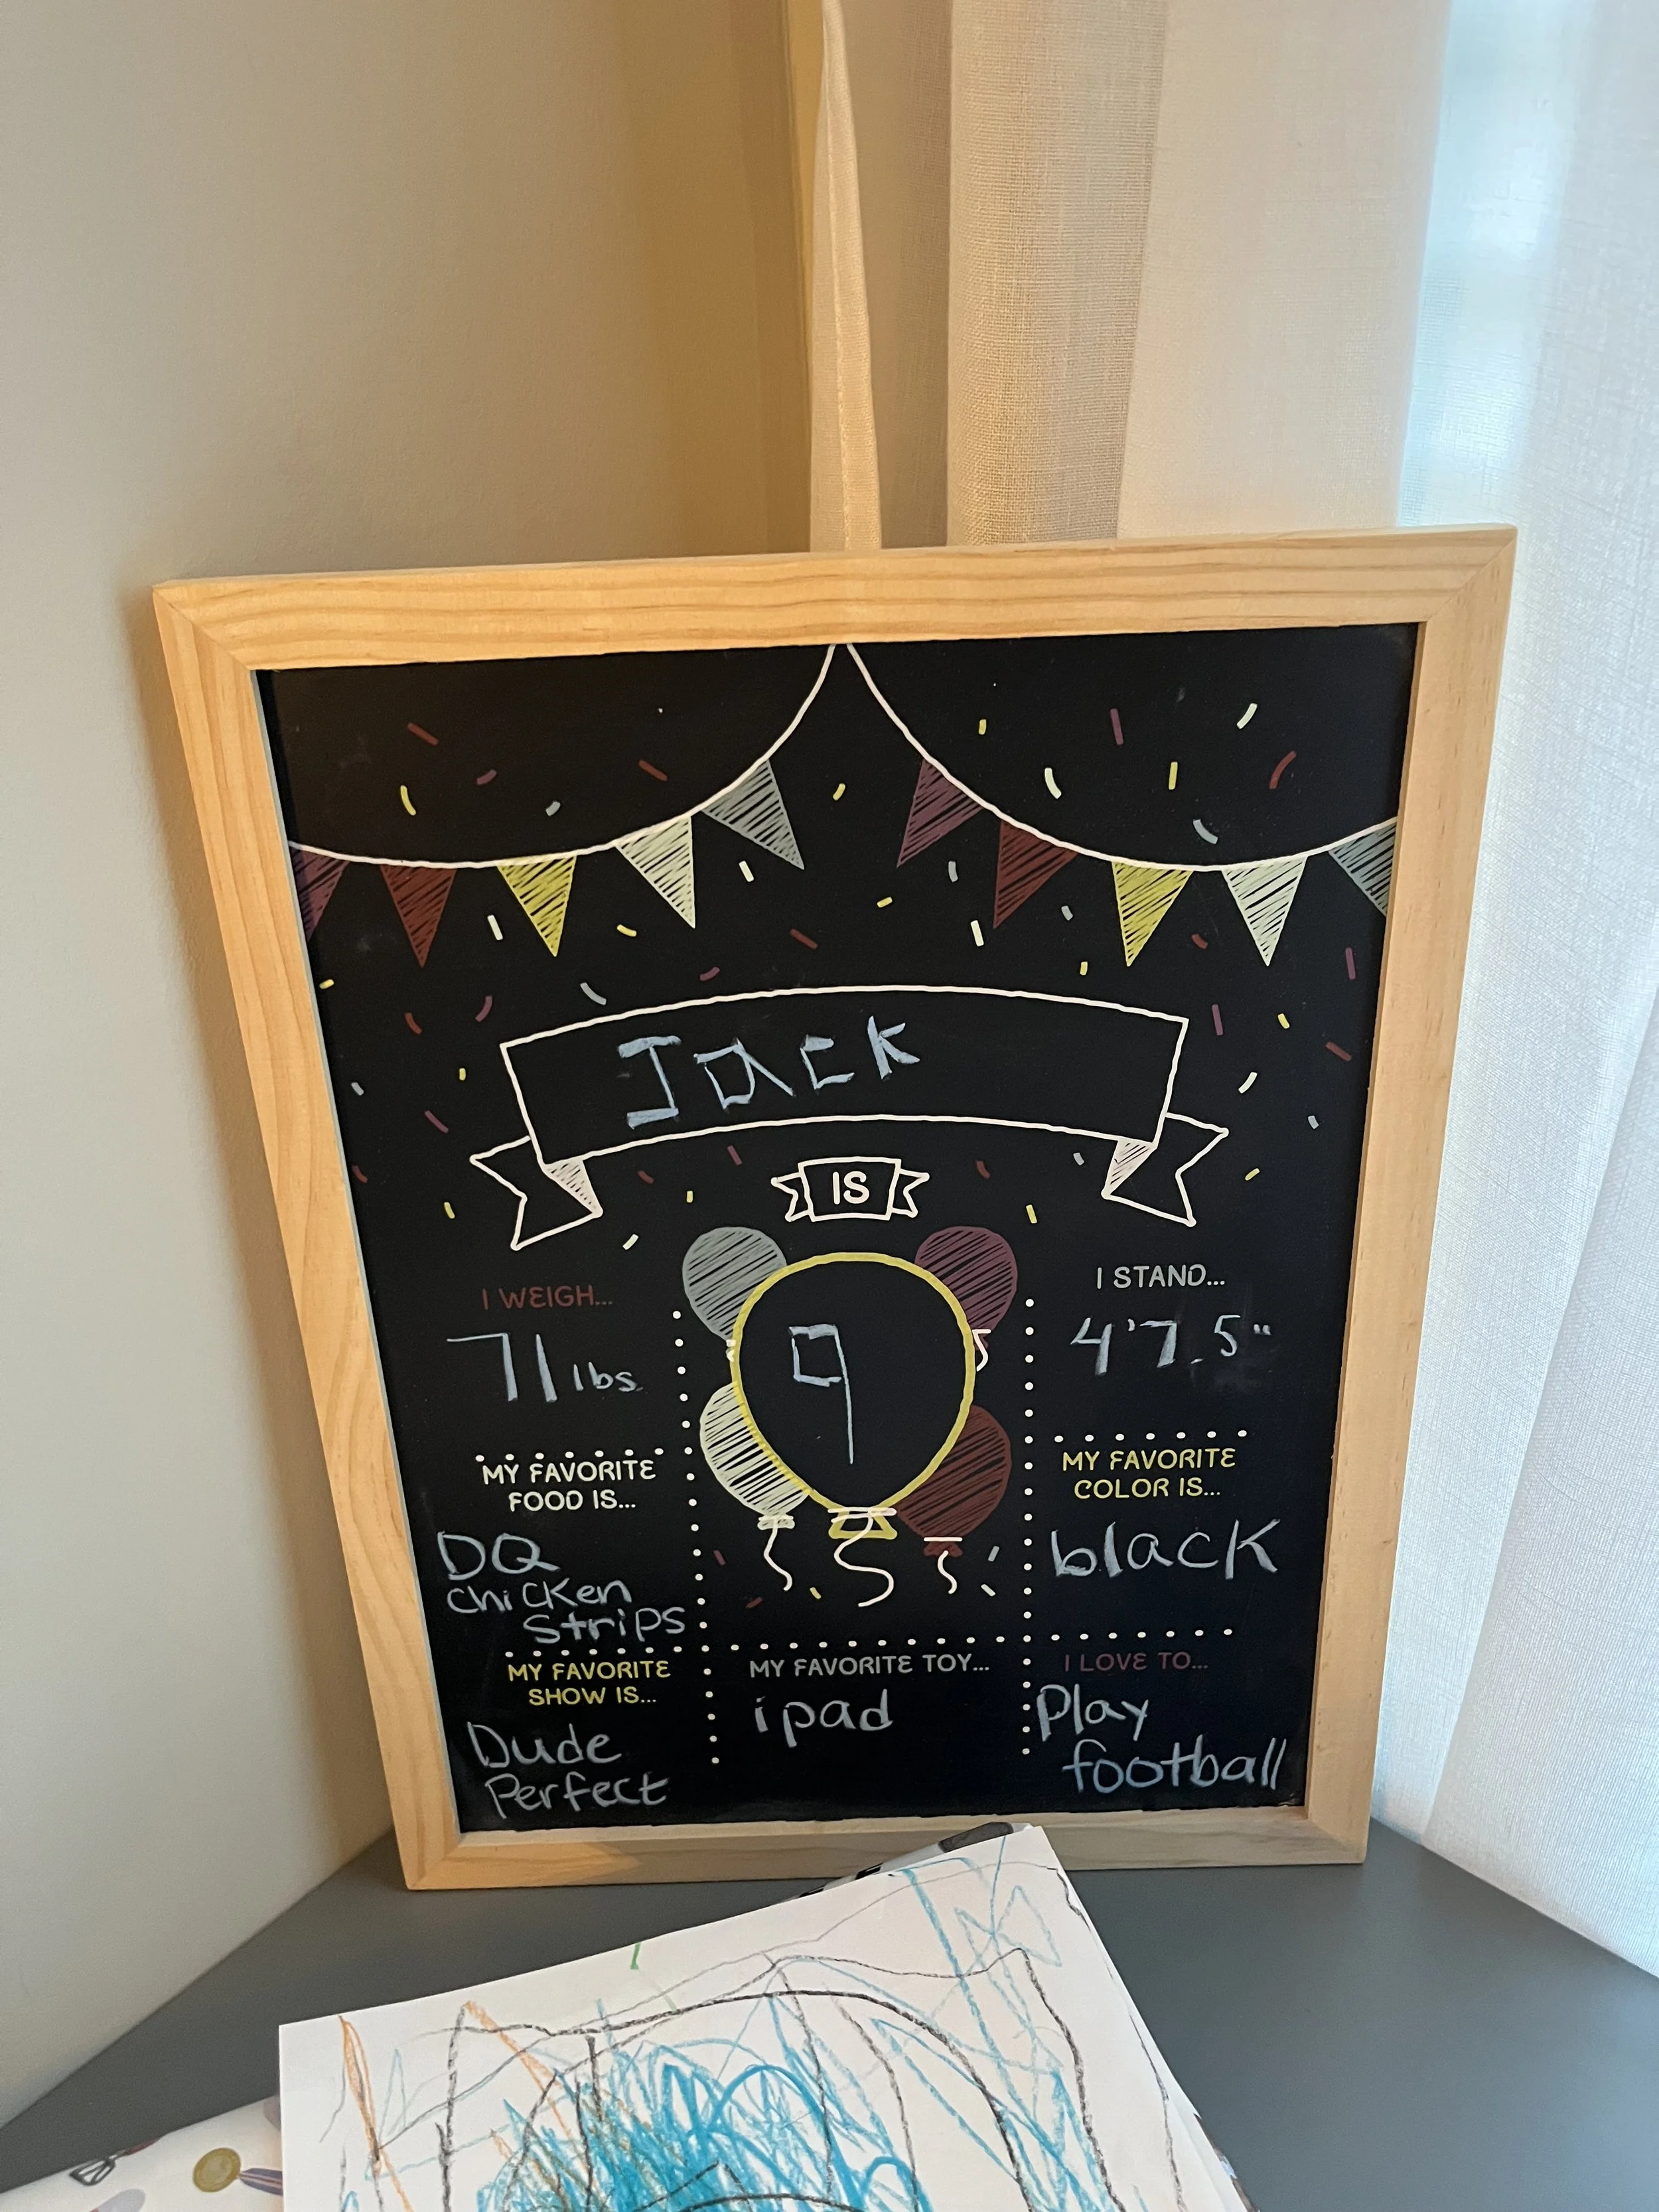 Jack
IS
I WEIGH...
71 lbs.
I STAND...
4'7.5"
9
MY FAVORITE
FOOD IS...
DQ
chicken
strips
MY FAVORITE
COLOR IS...
black
MY FAVORITE
SHOW IS...
Dude
Perfect
MY FAVORITE TOY...
ipad
I LOVE TO...
Play
football